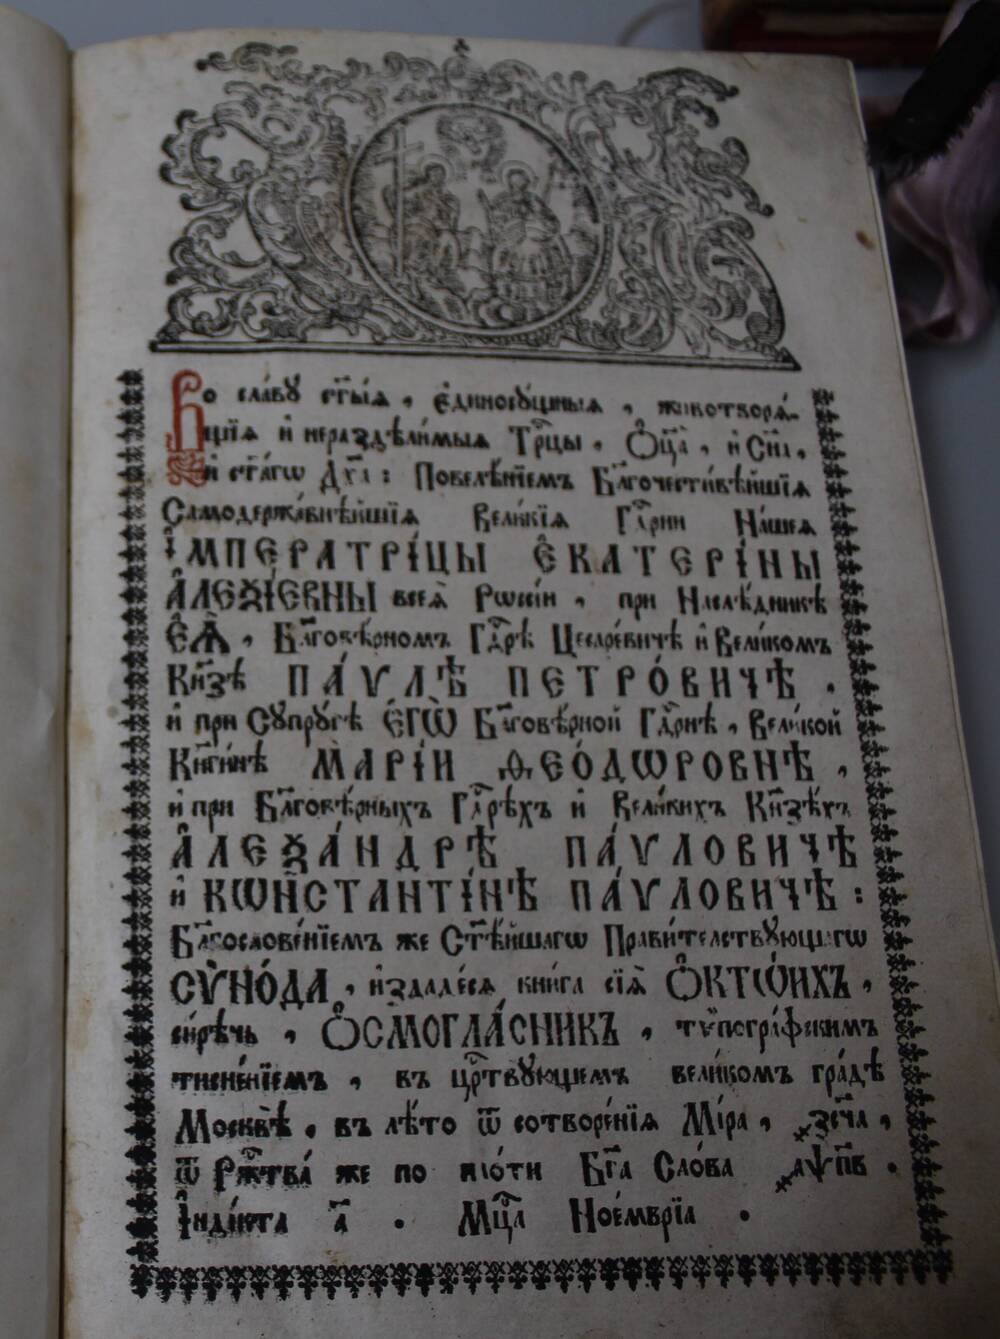 Во сла́вꙋ ст҃ы́ѧ, є҆диносꙋ́щныѧ, животворѧ́-
щїѧ и҆ нераздѣли́мыѧ Трⷪ҇цы, Ѻ҆ц҃а̀, и҆ Сн҃а,
и҆ ст҃а́гѡ Дх҃а: Повелѣ́нїемъ Бл҃гочести́вѣйшїѧ
Самодержа́внѣйшїѧ Вели́кїѧ Гдⷭ҇рни На́шеѧ
И҆МПЕРАТРІ́ЦЫ Є҆КАТЕРІ́НЫ
А҆ЛЕѮІ́ЕВНЫ всеѧ̀ Рѡссі́и, при Наслѣ́дникѣ
Є҆Ѧ̀, Бл҃говѣ́рномъ Гдⷭ҇рѣ Цесаре́вичѣ и҆ Вели́комъ
Кн҃зѣ ПА́ѴЛѢ ПЕТРО́ВИЧѢ.
и҆ при Сꙋпрꙋ́гѣ Є҆ГѠ̀ Бл҃говѣ́рной Гдⷭ҇рнѣ, Вели́кой
Кн҃ги́нѣ МАРІ́И ѲЕО́ДѠРОВНѢ,
и҆ при Бл҃говѣ́рныхъ Гдⷭ҇рѣхъ и҆ Вели́кихъ Кн҃зѣ́хъ
А҆ЛЕѮА́НДРѢ ПА́ѴЛОВИЧѢ
и҆ КѠНСТАНТІ́НѢ ПА́ѴЛОВИЧѢ:
Бл҃гослове́нїемъ же Ст҃ѣ́йшагѡ Прави́телствꙋющагѡ
СѴНО́ДА, и҆здаде́сѧ кни́га сїѧ̀ Ѻ҆КТѠ́ИХЪ,
си́рѣчь, Ѻ҆СМОГЛА́СНИКЪ, тѷпогра́фскимъ
тисне́нїемъ, въ црⷭ҇твꙋющемъ вели́комъ гра́дѣ
Москвѣ̀, въ лѣ́то ѿ сотворе́нїѧ Мі́ра, ҂зсч҃а,
ѿ Ржⷭ҇тва́ же по пло́ти Бг҃а Сло́ва ҂аѱп҃в.
І҆нді́кта а҃. Мцⷭ҇а Ное́мврїа.